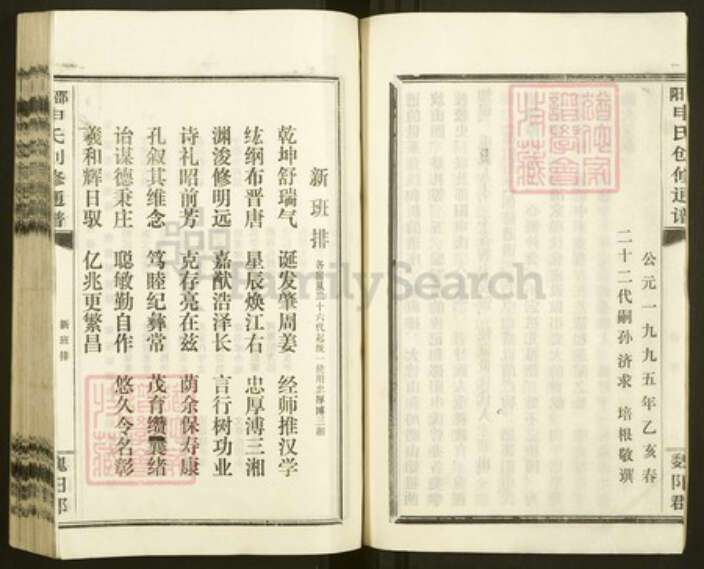 公元一九九五年乙亥春
二十二代嗣孙 济求 培根敬撰
新班排
乾坤舒瑞气 诞发肇周姜 经师推汉学
纮纲布晋唐 星辰焕江右 忠厚溥三湘
渊浚修明远 嘉猷浩泽长 言行树功业
诗礼昭前芳 克存亮在兹 荫余保寿康
孔叙其维念 笃睦纪彝常 茂育缵襄绪
诒谋德秉庄 聪敏勤自作 悠久令名彰
羲和辉日驭 亿兆更繁昌
新班排
阳申氏创修通谱
魏阳君
邵申氏创修通谱
FamilySearch